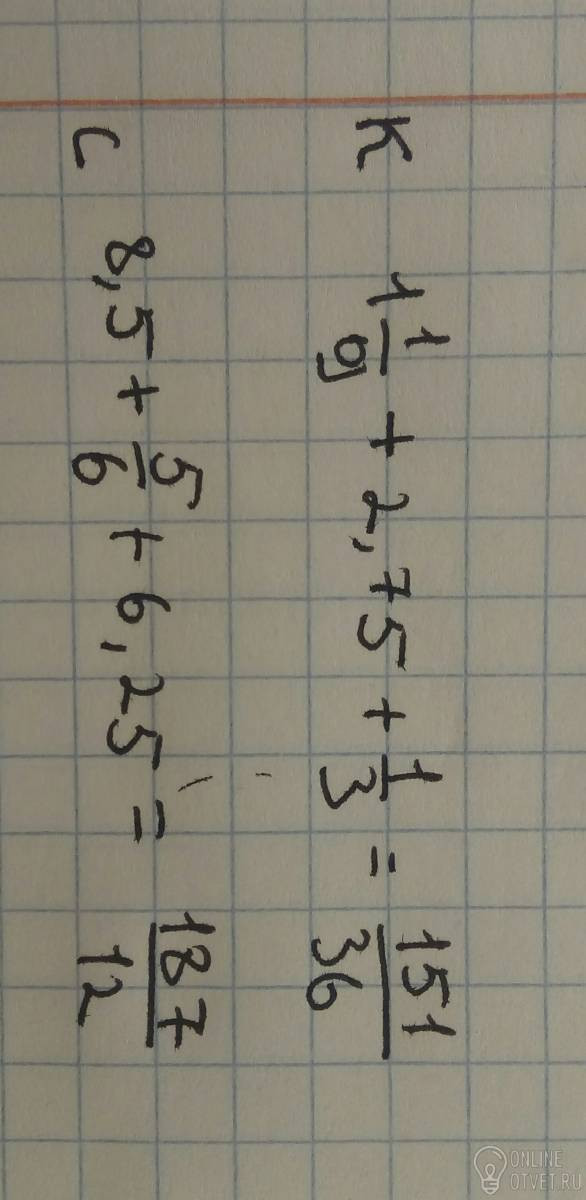 К 1 1/9 + 2,75 + 1/3 = 151/36
С 8,5 + 5/6 + 6,25 = 187/12
ONLINE
OTVET.RU